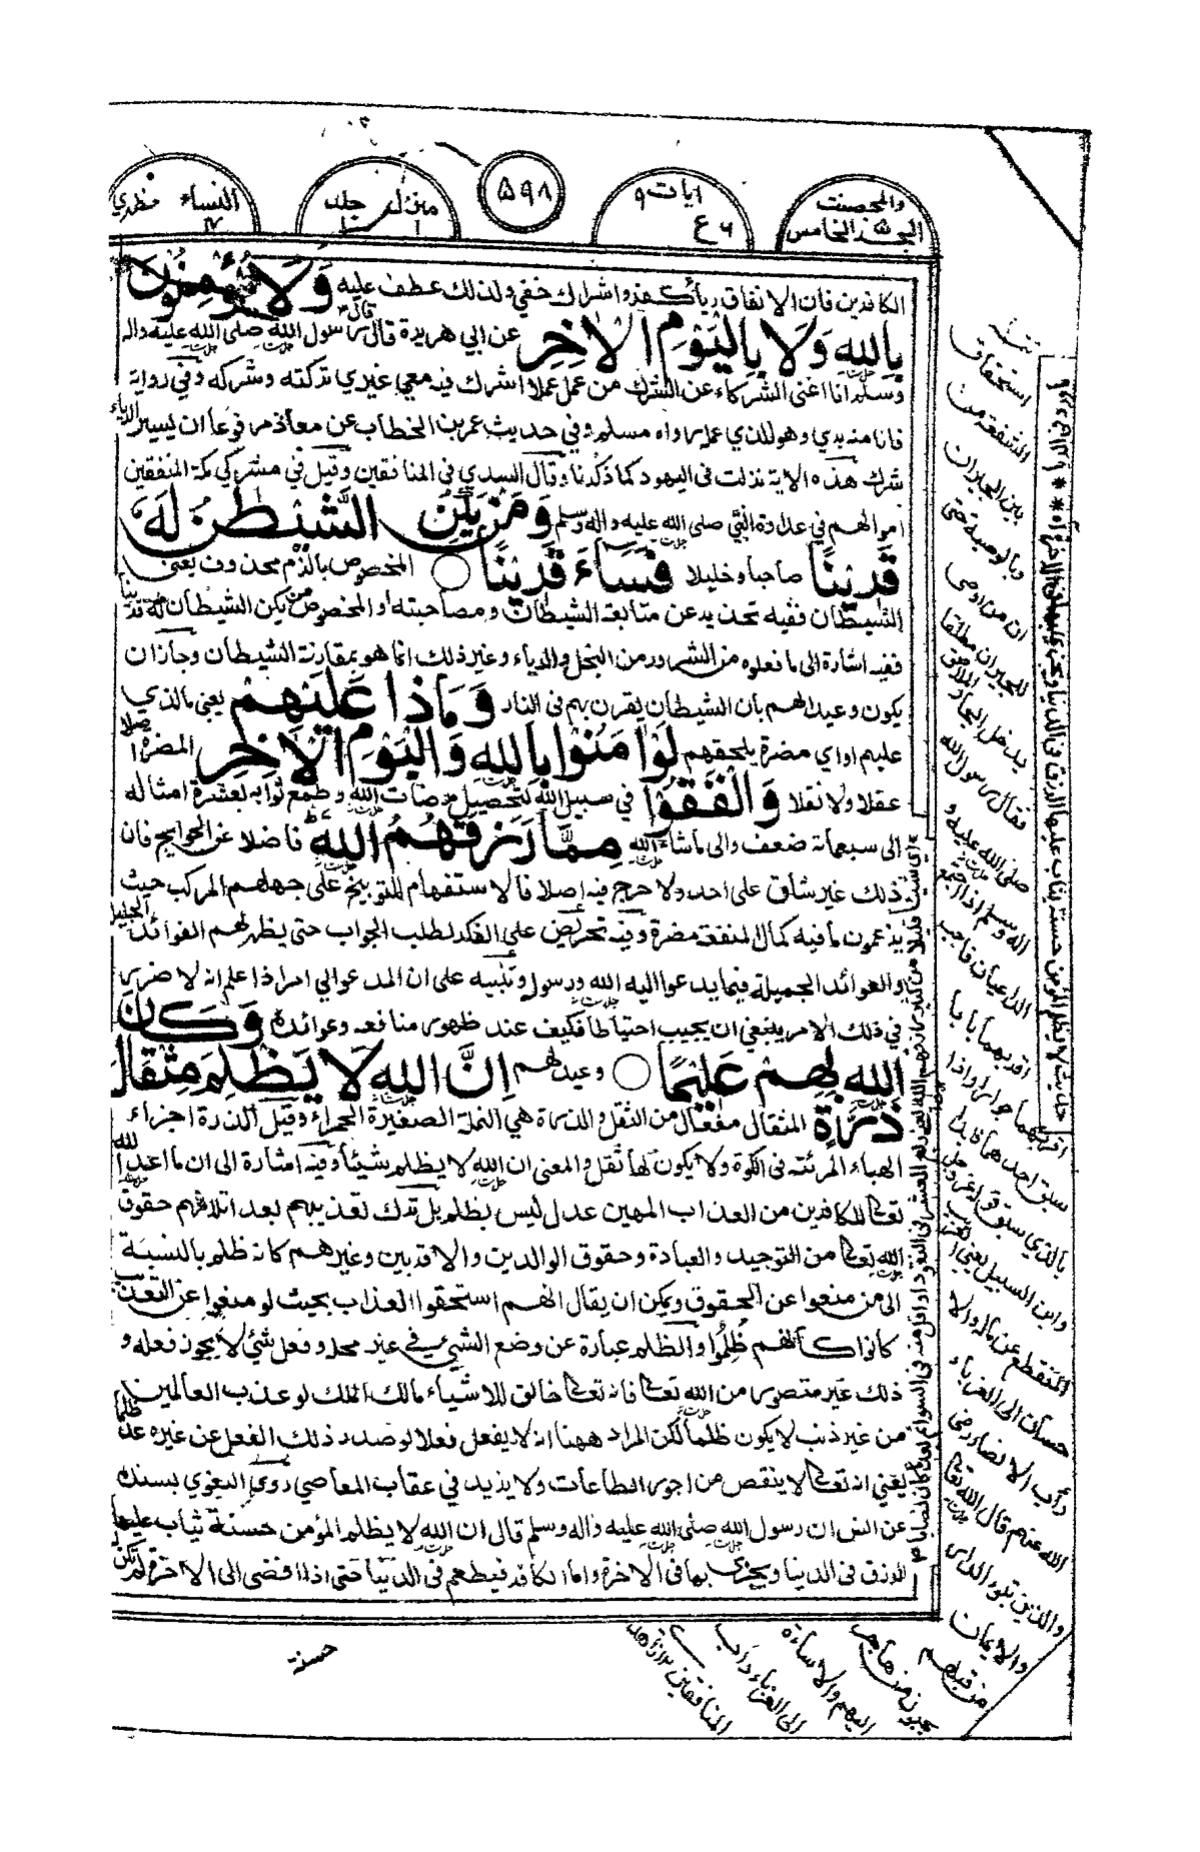 والمحصنت
الجزء الخامس
ايات ٩
ع ٦
۵۹۸
منزل ١ جلد ١
النساء مظهري
الكافرين فان الانفاق رياء كفر واشراك خفي ولذلك عطف عليه وَلَا يُؤْمِنُونَ
بِاللهِ وَلَا بِالْيَوْمِ الْاٰخِرِ عن ابي هريرة قال قال رسول الله صلى الله عليه واله
وسلم انا اغنى الشركاء عن الشرك من عمل عملا اشرك فيه معي غيري تركته وشركه وفي رواية
فانا منه بري وهو للذي عمله رواه مسلم وفي حديث عمر بن الخطاب عن معاذ مرفوعا ان يسير الرياء
شرك هذه الاية نزلت في اليهود كما ذكرنا وقال السدي في المنافقين وقيل في مشركي مكة المنفقين
اموالهم في عداوة النبي صلى الله عليه واله وسلم وَمَنْ يَّكُنِ الشَّيْطٰنُ لَهٗ
قَرِيْنًا صاحبا وخليلا فَسَآءَ قَرِيْنًا ○ المخصوص بالذم محذوف يعني
الشيطان ففيه تحذير عن متابعة الشيطان ومصاحبته او المخصوص من يكن الشيطان له قرينا
ففيه اشارة الى ما فعلوه من الشرور من البخل والرياء وغير ذلك انما هو بمقارنة الشيطان وجاز ان
يكون وعيدا لهم بان الشيطان يقرن بهم في النار وَمَاذَا عَلَيْهِمْ يعني ما الذي
عليهم او اي مضرة يلحقهم لَوْ اٰمَنُوْا بِاللهِ وَالْيَوْمِ الْاٰخِرِ المضرة اصلا
عقلا ولا نقلا وَاَنْفَقُوْا في سبيل الله لتحصيل مرضات الله وطمع ثوابه بعشرة امثاله
الى سبعمائة ضعف والى ما شاء الله مِمَّا رَزَقَهُمُ اللهُ فاضلا عن الحوايج فان
ذلك غير شاق على احد ولا حرج فيه اصلا فالاستفهام للتوبيخ على جهلهم المركب حيث
يزعمون ما فيه كمال المنفعة مضرة وفيه تحريض على الفكر لطلب الجواب حتى يظهر لهم الفوائد الجليلة
والعوائد الجميلة فيما يدعوا اليه الله ورسوله وتنبيه على ان المدعو الى امر اذا علم انه لا ضرر
في ذلك الامر ينبغي ان يجيب احتياطا فكيف عند ظهور منافعه وعوائده وَكَانَ
اللهُ بِهِمْ عَلِيْمًا ○ وعيد لهم اِنَّ اللهَ لَا يَظْلِمُ مِثْقَالَ
ذَرَّةٍ المثقال مفعال من الثقل والذرة هي النملة الصغيرة الحمراء وقيل الذرة اجزاء
الهباء المرئية في الكوة ولا يكون لها ثقل والمعنى ان الله لا يظلم شيئا وفيه اشارة الى ان ما اعد الله
تعالى للكافرين من العذاب المهين عدل ليس بظلم بل ترك تعذيبهم بعد اتلافهم حقوق
الله تعالى من التوحيد والعبادة وحقوق الوالدين والاقربين وغيرهم كانه ظلم بالنسبة
الى من منعوا عن الحقوق ويمكن ان يقال انهم استحقوا العذاب بحيث لو منعوا عن التعذيب
كانوا كانهم ظُلِمُوا والظلم عبارة عن وضع الشيئ في غير محله وفعل شئي لا يجوز فعله و
ذلك غير متصور من الله تعالى فانه تعالى خالق للاشياء مالك الملك لو عذب العالمين
من غير ذنب لا يكون ظلما لكن المراد ههنا انه لا يفعل فعلا لو صدر ذلك الفعل عن غيره عد ظلما
يعني انه تعالى لا ينقص من اجور الطاعات ولا يزيد في عقاب المعاصي روى البغوي بسنده
عن انس ان رسول الله صلى الله عليه واله وسلم قال ان الله لا يظلم المؤمن حسنة يثاب عليها
الرزق في الدنيا ويجزى بها في الاخرة واما الكافر فيطعم في الدنيا حتى اذا افضى الى الاخرة لم تكن
حسنة
استحقاق
الشفعة من
بين الجيران
وبالوصية حتى
ان من اوصى
للجيران مطلقا
يدخل الجار الملاصق
فقال رسول الله
صلى الله عليه و
اله وسلم اذا اجتمع
الداعيان فاجب
اقربهما بابا
جوارا واذا
سبق احدهما فابدأ
بالذي سبق
وابن السبيل يعني
المنقطع عن ماله والا
حسان الى الغرباء
دأب الانصار رضي
الله عنهم قال الله تعالى
والذين تبوء الدار
والايمان
من قبلهم
يحبون من هاجر
اليهم والاساءة
الى الغرباء دأب
المنافقين